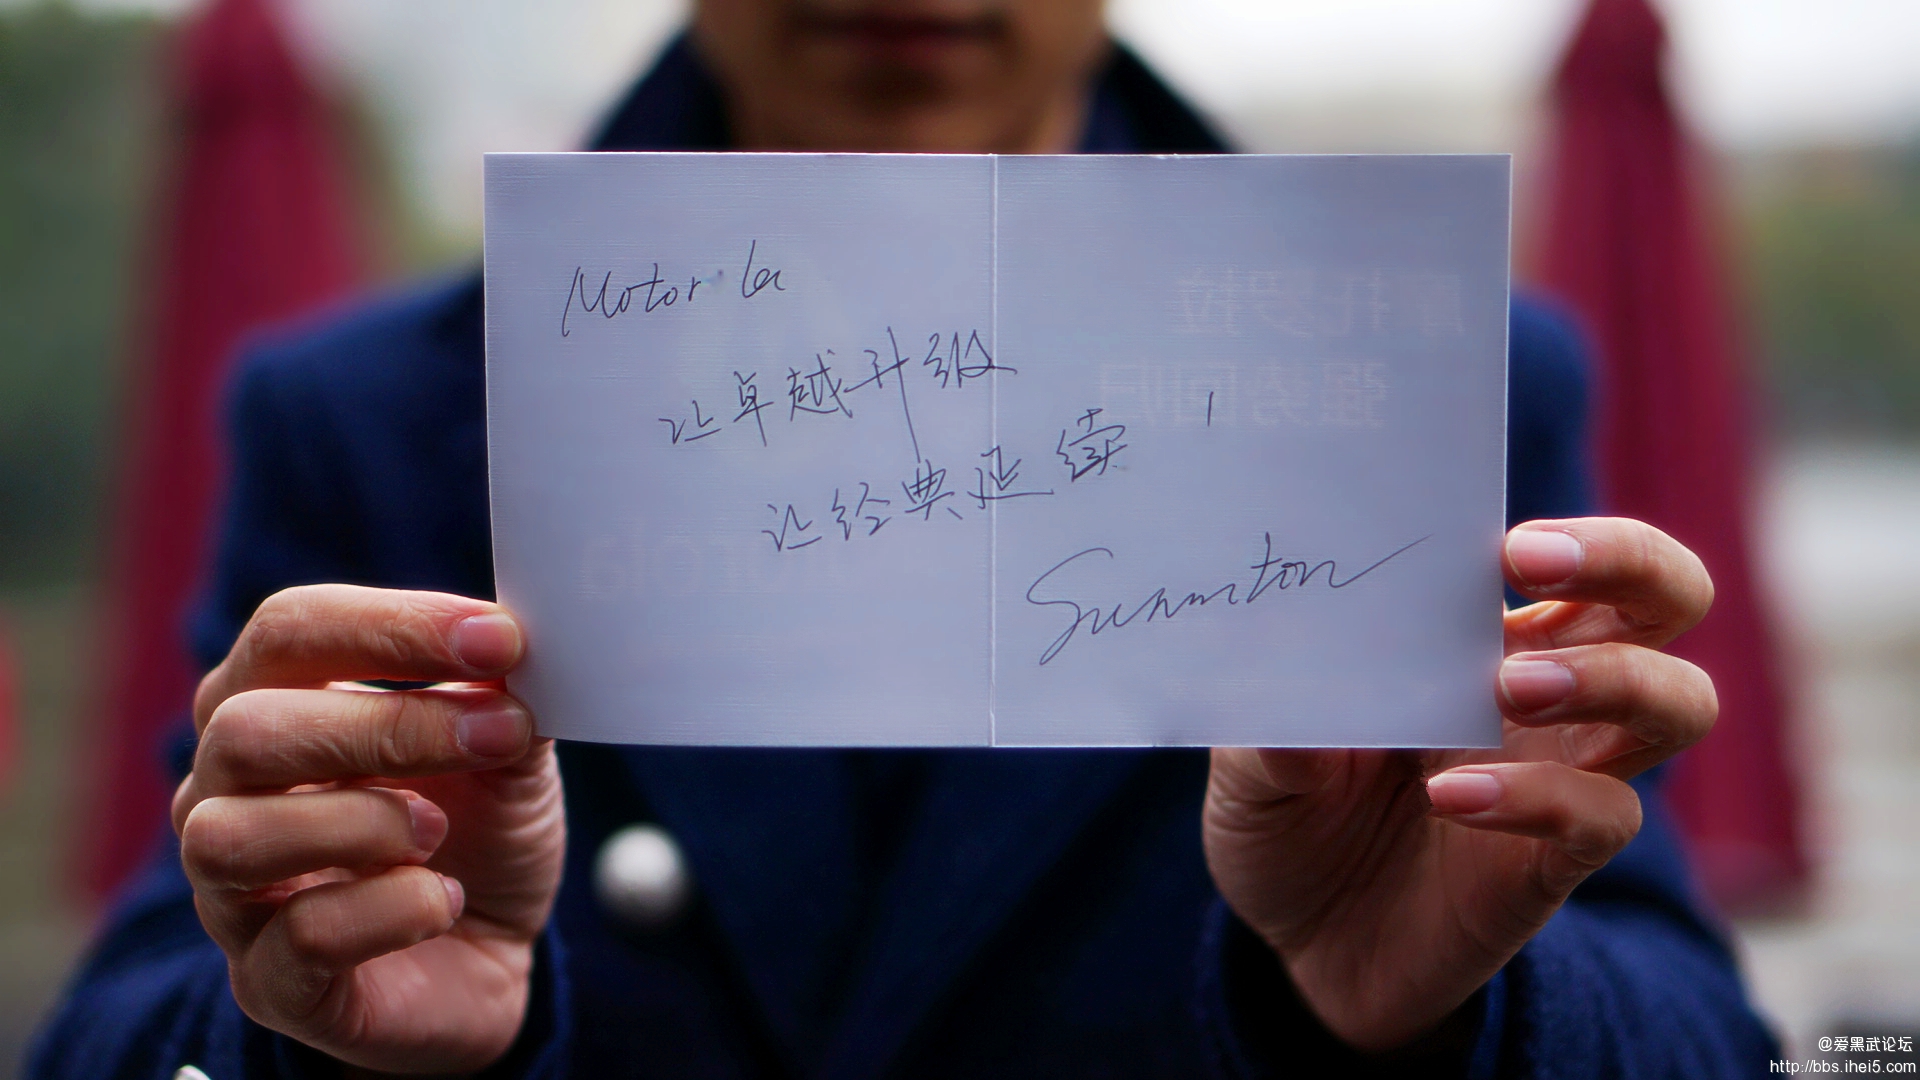 Motorola
让卓越升级
让经典延续！
摩托罗拉
强势回归
@爱黑武论坛
http://bbs.ihei5.com